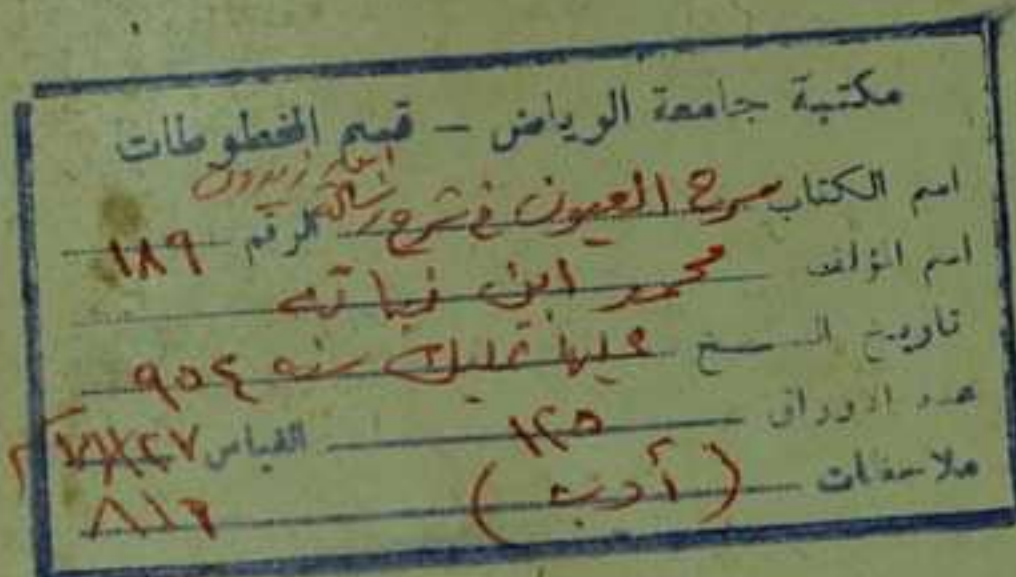 مكتبة جامعة الرياض – قسم المخطوطات
ابن زيدون
اسم الكتاب سرح العيون في شرح رسالة الرقم ١٨٩
اسم المؤلف محمد ابن نباته
تاريخ النسخ عليها تمليك سنه ٩٥٤
عدد الاوراق ١٢٥ القياس
ملاحظات (أدب) ٨١٦